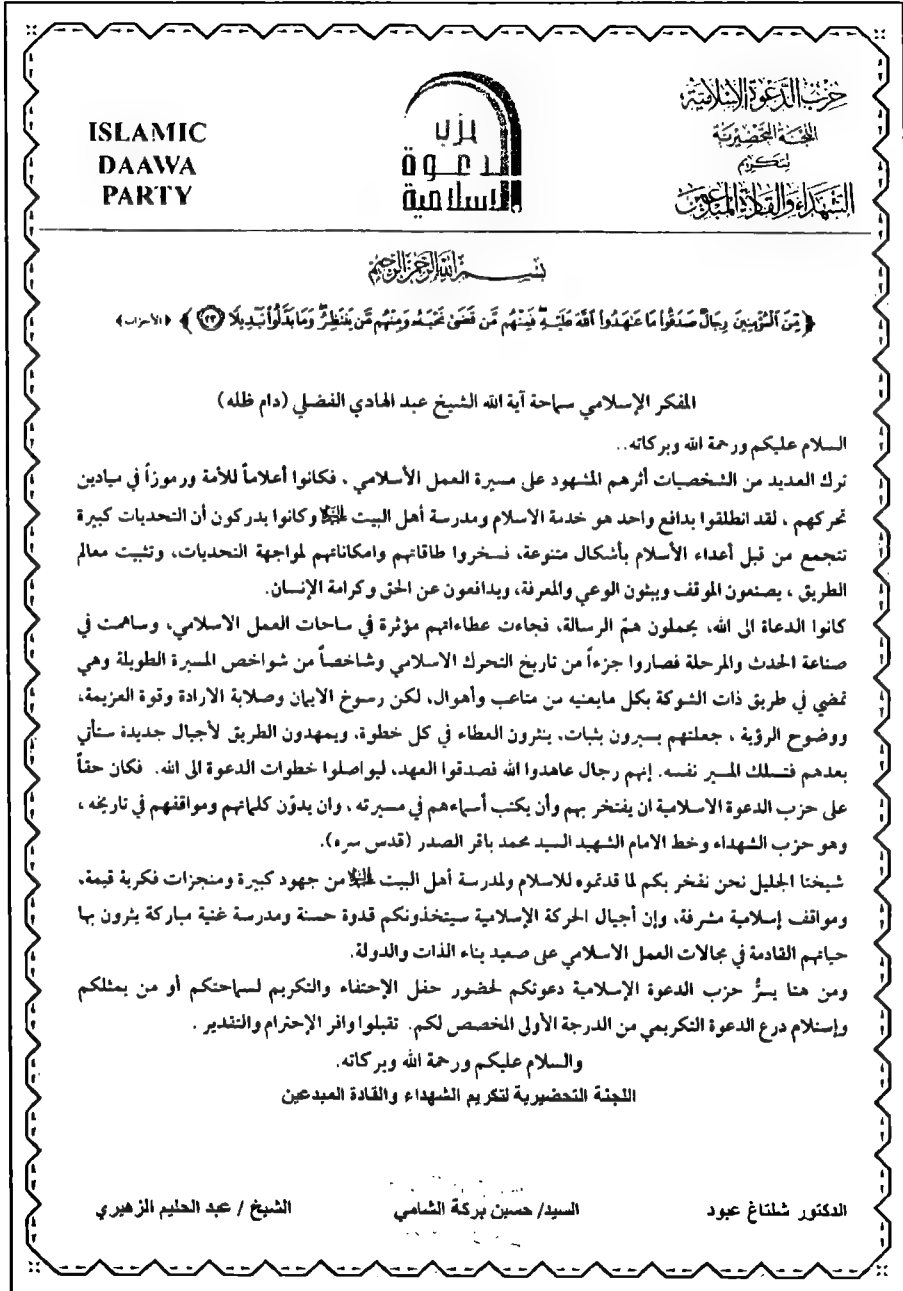 حزب الدعوة الإسلامية
اللجنة التحضيرية
لتكريم
الشهداء والقادة المبدعين
حزب
الدعوة
الإسلامية
ISLAMIC
DAAWA
PARTY
بسم الله الرحمن الرحيم
﴿ مِّنَ ٱلْمُؤْمِنِينَ رِجَالٌ صَدَقُوا۟ مَا عَـٰهَدُوا۟ ٱللَّهَ عَلَيْهِ ۖ فَمِنْهُم مَّن قَضَىٰ نَحْبَهُۥ وَمِنْهُم مَّن يَنتَظِرُ ۖ وَمَا بَدَّلُوا۟ تَبْدِيلًا ﴿٢٣﴾ ﴾ ﴿الأحزاب﴾
المفكر الإسلامي سماحة آية الله الشيخ عبد الهادي الفضلي (دام ظله)
السلام عليكم ورحمة الله وبركاته..
ترك العديد من الشخصيات أثرهم المشهود على مسيرة العمل الأسلامي ، فكانوا أعلاماً للأمة ورموزاً في ميادين
تحركهم ، لقد انطلقوا بدافع واحد هو خدمة الاسلام ومدرسة أهل البيت عليهم السلام وكانوا يدركون أن التحديات كبيرة
تتجمع من قبل أعداء الأسلام بأشكال متنوعة، فسخروا طاقاتهم وامكاناتهم لمواجهة التحديات، وتثبيت معالم
الطريق ، يصنعون الموقف ويبثون الوعي والمعرفة، ويدافعون عن الحق وكرامة الإنسان.
كانوا الدعاة الى الله، يحملون همّ الرسالة، فجاءت عطاءاتهم مؤثرة في ساحات العمل الاسلامي، وساهمت في
صناعة الحدث والمرحلة فصاروا جزءاً من تاريخ التحرك الاسلامي وشاخصاً من شواخص المسيرة الطويلة وهي
تمضي في طريق ذات الشوكة بكل مايعنيه من متاعب وأهوال، لكن رسوخ الايمان وصلابة الارادة وقوة العزيمة،
ووضوح الرؤية ، جعلتهم يسيرون بثبات، ينثرون العطاء في كل خطوة، ويمهدون الطريق لأجيال جديدة ستأتي
بعدهم فتسلك المسير نفسه. إنهم رجال عاهدوا الله فصدقوا العهد، ليواصلوا خطوات الدعوة الى الله. فكان حقاً
على حزب الدعوة الاسلامية ان يفتخر بهم وأن يكتب أسماءهم في مسيرته ، وان يدوّن كلماتهم ومواقفهم في تاريخه ،
وهو حزب الشهداء وخط الامام الشهيد السيد محمد باقر الصدر (قدس سره).
شيخنا الجليل نحن نفخر بكم لما قدتموه للاسلام ولمدرسة أهل البيت عليهم السلام من جهود كبيرة ومنجزات فكرية قيمة،
ومواقف إسلامية مشرفة، وإن أجيال الحركة الإسلامية سيتخذونكم قدوة حسنة ومدرسة غنية مباركة يثرون بها
حياتهم القادمة في مجالات العمل الاسلامي على صعيد بناء الذات والدولة.
ومن هنا يسرُّ حزب الدعوة الإسلامية دعوتكم لحضور حفل الإحتفاء والتكريم لسماحتكم أو من يمثلكم
وإستلام درع الدعوة التكريمي من الدرجة الأولى المخصص لكم. تقبلوا وافر الإحترام والتقدير .
والسلام عليكم ورحمة الله وبركاته.
اللجنة التحضيرية لتكريم الشهداء والقادة المبدعين
الدكتور شلتاغ عبود السيد/ حسين بركة الشامي الشيخ / عبد الحليم الزهيري